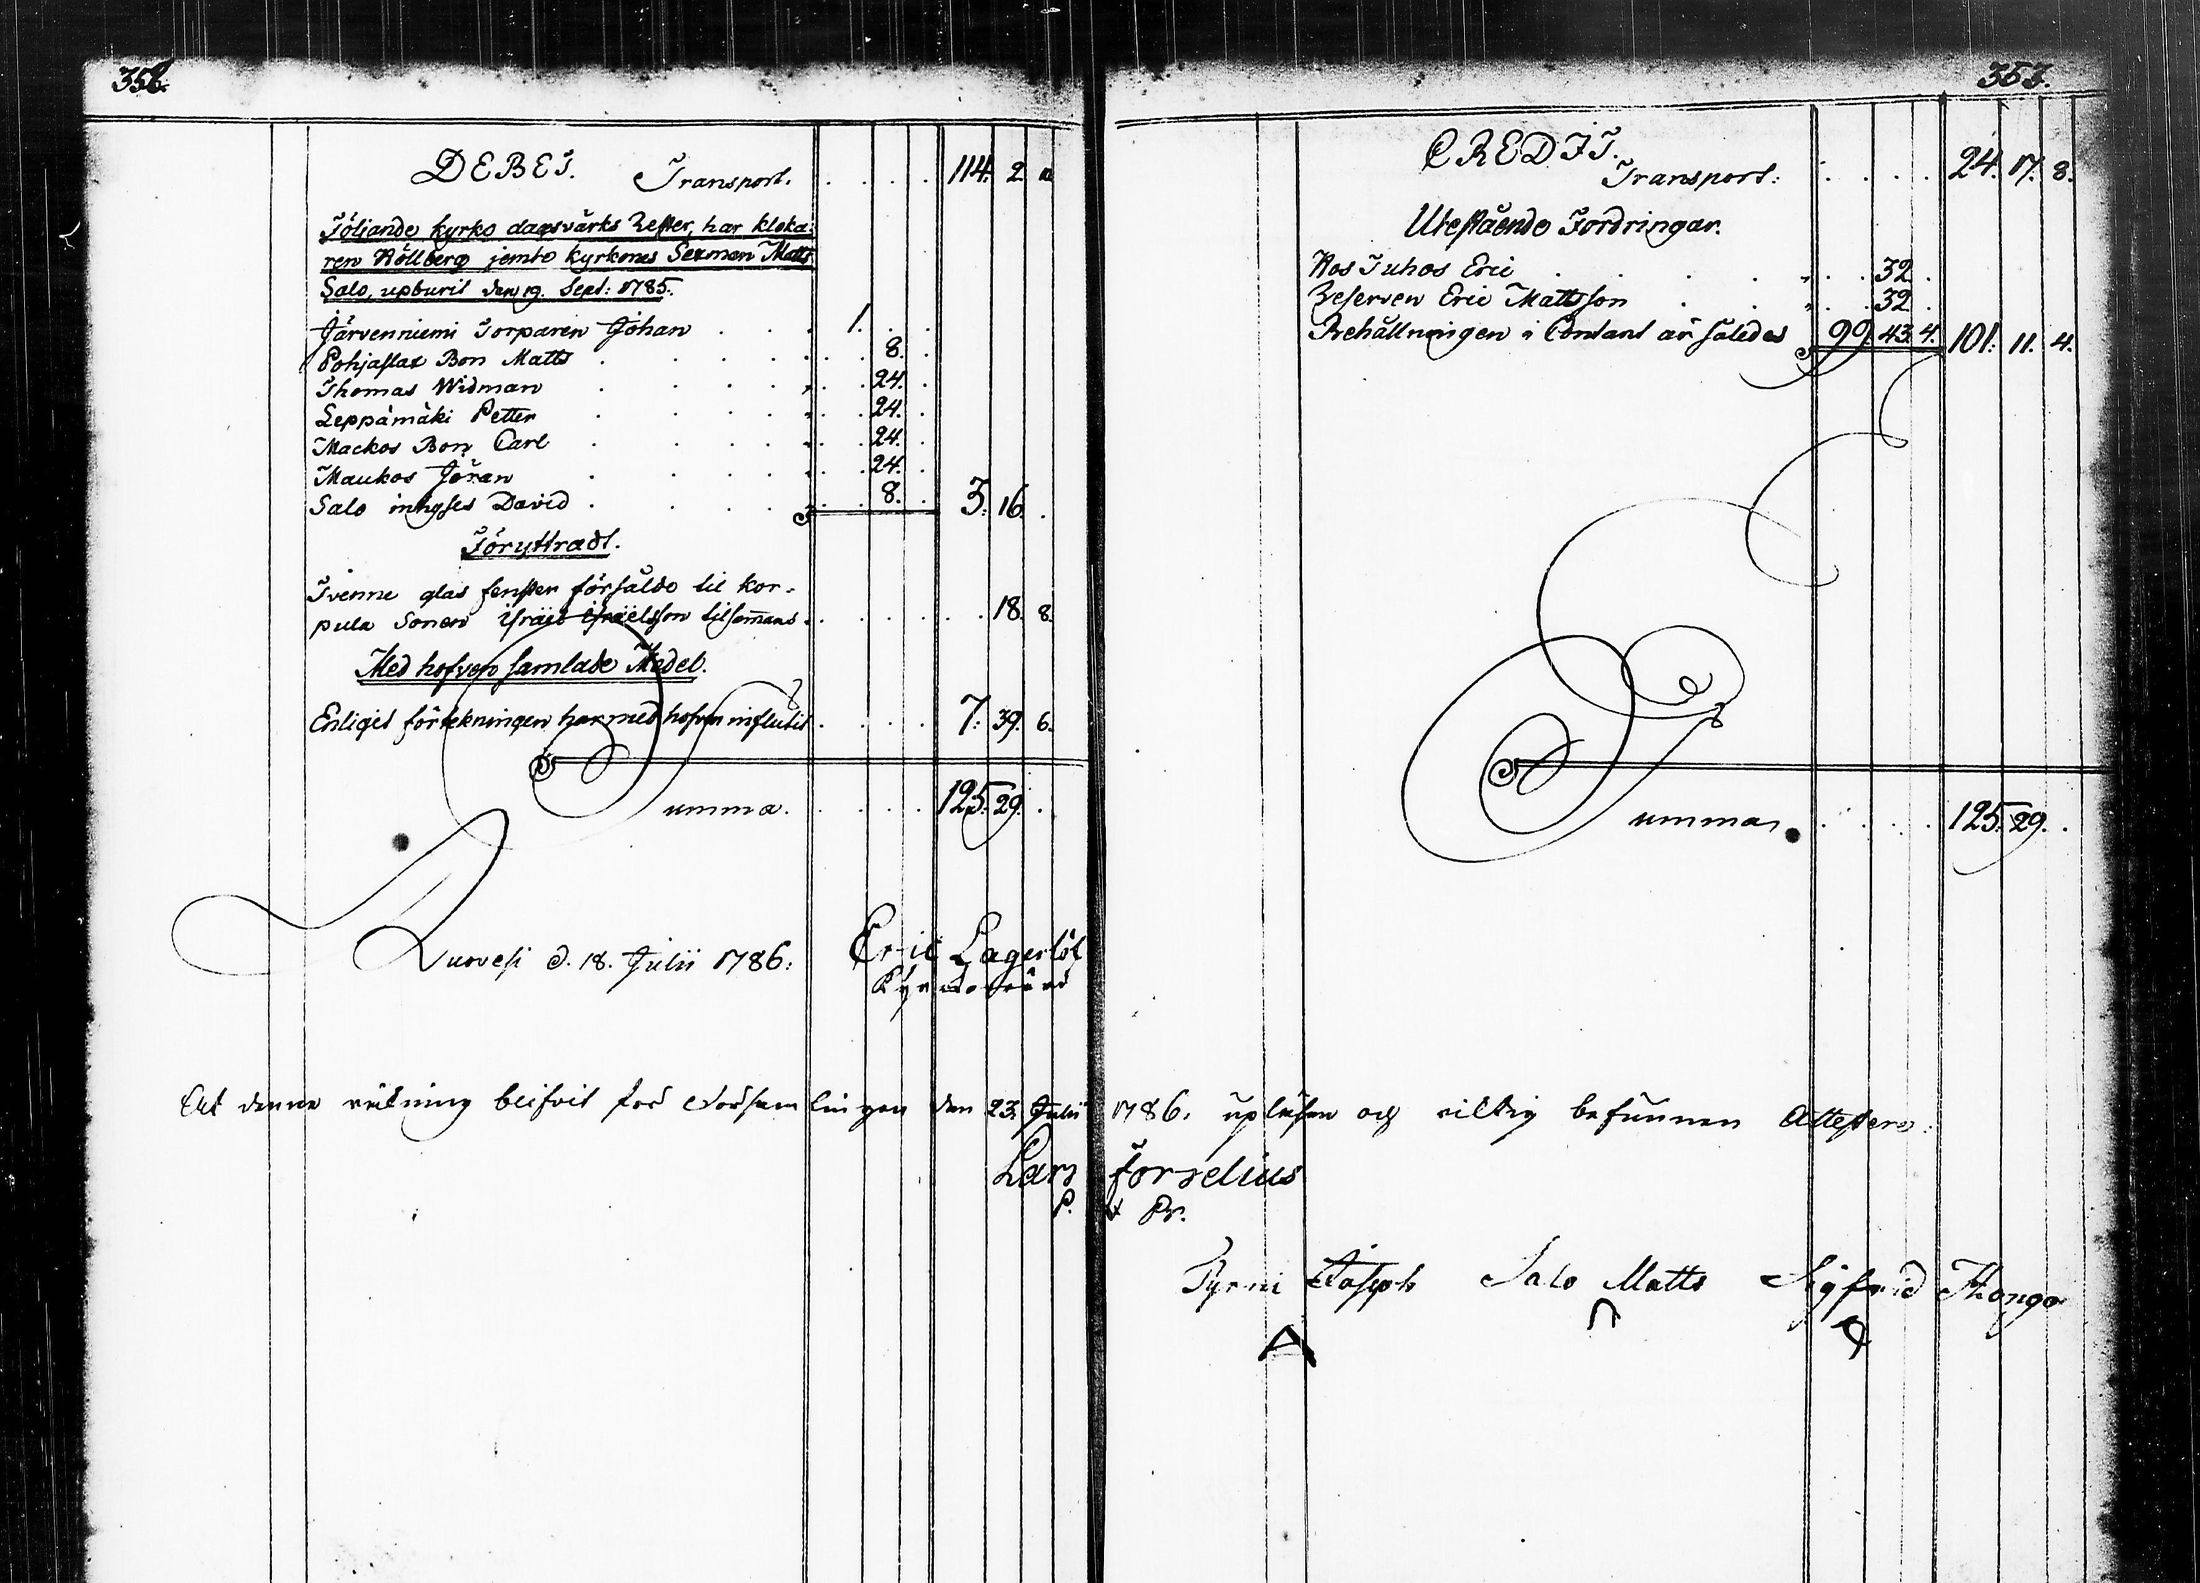 352.
DEBET. Transport. . . . . 114. 2. 10
Följande kyrko dagsvärks Rester, har kloka-
ren Höllberg jemte kyrkones Sexman Matts
Salo, upburit den 19. Sept: 1785.
Järvenniemi Torparen Johan . . . 1. . .
Pohjaslax Bon Matts . . . . . . 8. .
Thomas Widman . . . . . . 24. .
Leppämäki Petter . . . . . . 24. .
Mackos Bon Carl . . . . . . 24. .
Maukos Jöran . . . . . . 24. .
Salo inhyses David . . . . . . 8. . 3. 16. .
Föryttradt.
Tvenne glas fenster försålde til kor-
pula Sonen Israël Israëlsson tilsammans . . . . . . 18. 8.
Med hofven samlade Medel.
Enligit förtekningen har med hofven influtit . . . . 7. 39. 6.
Summa. . . . . 125. 29. .
Ruovesi d. 18. Julii 1786. Eric Lagerlöf
Kyrkovärd
353.
CREDIT.
Transport: . . . . 24. 17. 8.
Utestående Fordringar.
Hos Juhos Eric . . . . . . 32 .
Reserven Eric Mattsson . . . . . 32 .
Behållningen i Contant är således 99. 43. 4. 101. 11. 4.
Summa . . . . 125. 29. .
At denna räkning blifvit för Församlingen den 23. Julii 1786. upläsen och riktig befunnen Attestera:
Lars Forselius
P. & Pr.
Pyrni Joseph Salo Matts Sigfrid Kongo